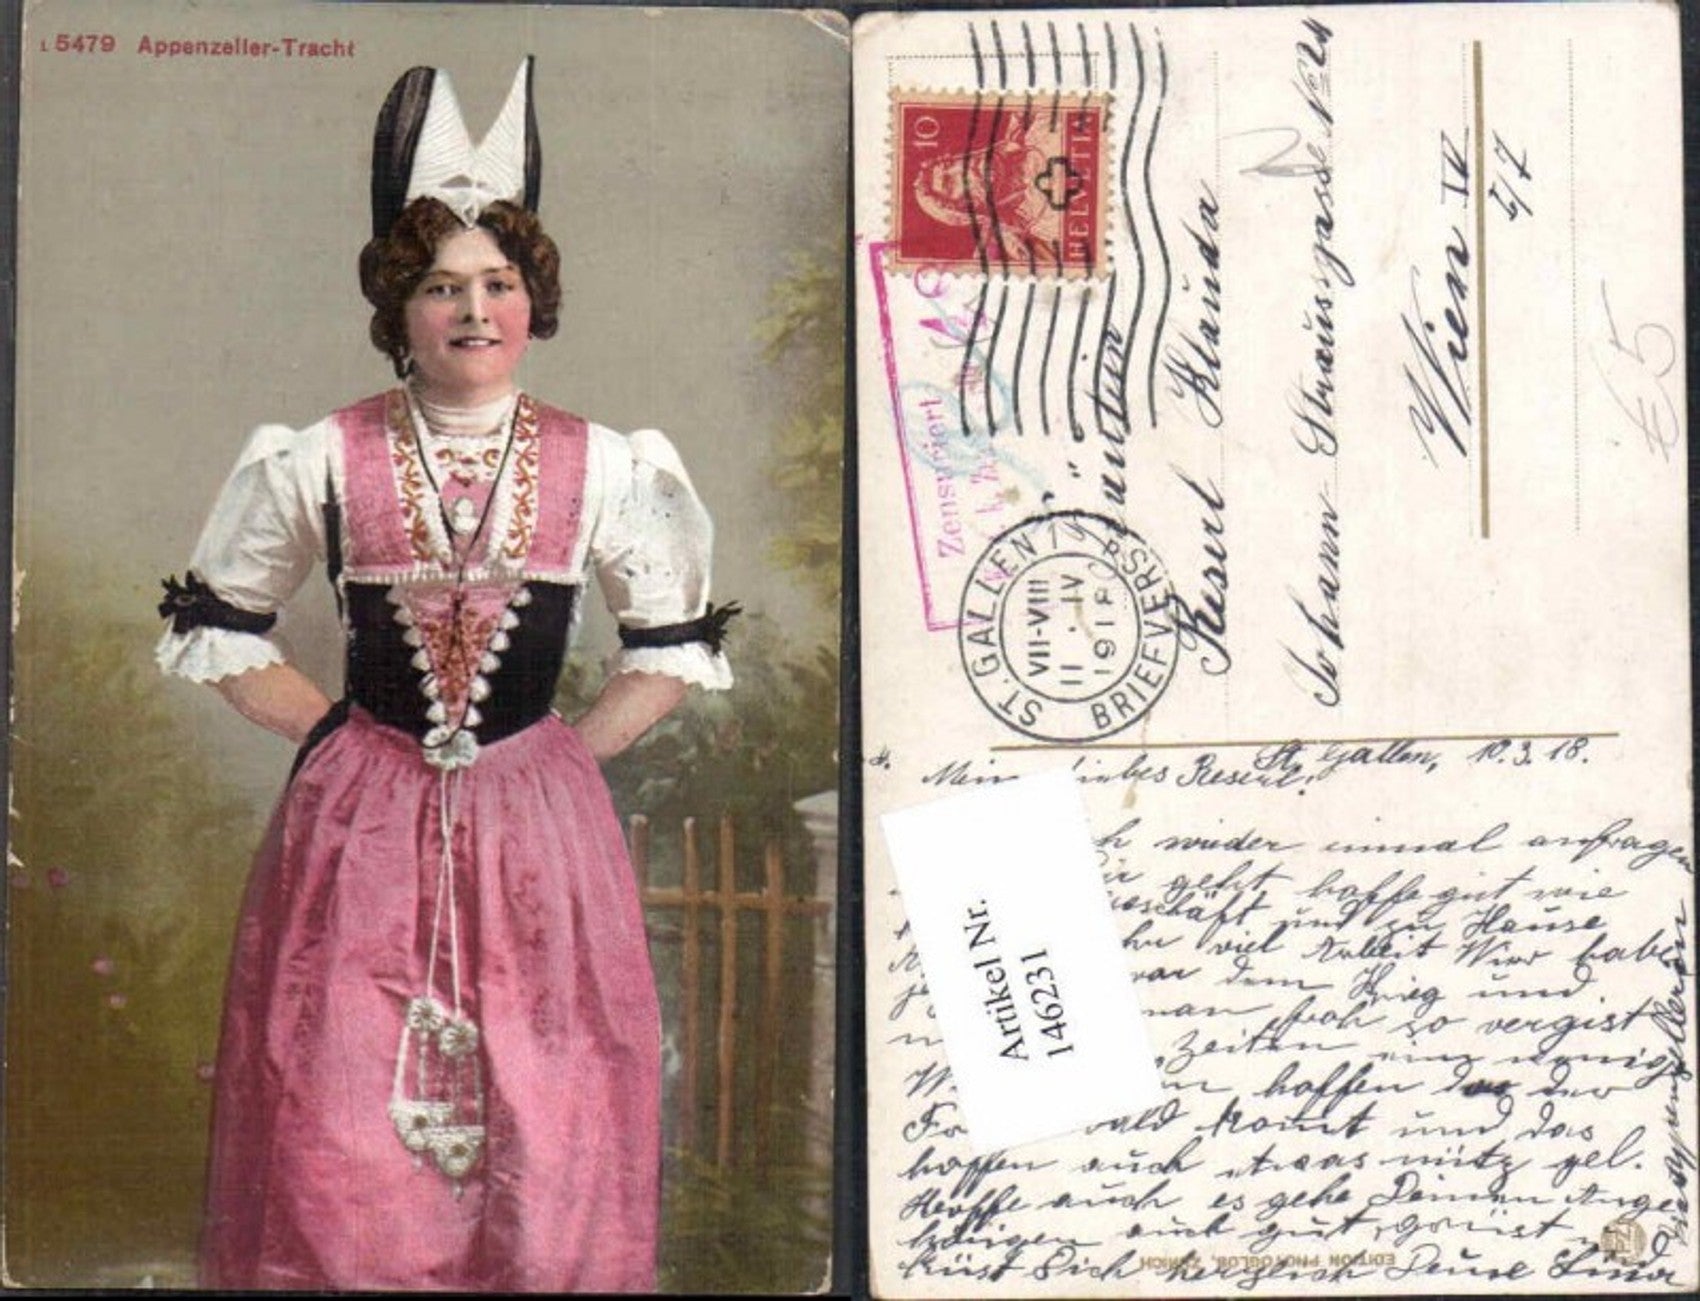 5479 Appenzeller-Tracht
10
HELVETIA
Zensuriert
ST. GALLEN 1
BRIEFVERS.
VII-VIII
11.IV
1918
Reserl Klauda
Johann Straussgasse No 24
Wien IV
5/7
€ 5
St. Gallen, 10.3.18.
Mein liebes Reserl!
wieder einmal anfragen
geht hoffe gut wie
und zu Hause
viel Arbeit Wir habe
dem Krieg und
man froh so vergist
Zeiten ein wenig
hoffen das der
bald kommt und das
hoffen auch etwas nütz
Hoffe auch es gehe Deinen Ange
hörigen auch gut, grüst
küst Dich herzlich Deine Lina
Appenzellerin
EDITION PHOTOGLOB, ZÜRICH
Artikel Nr.
146231